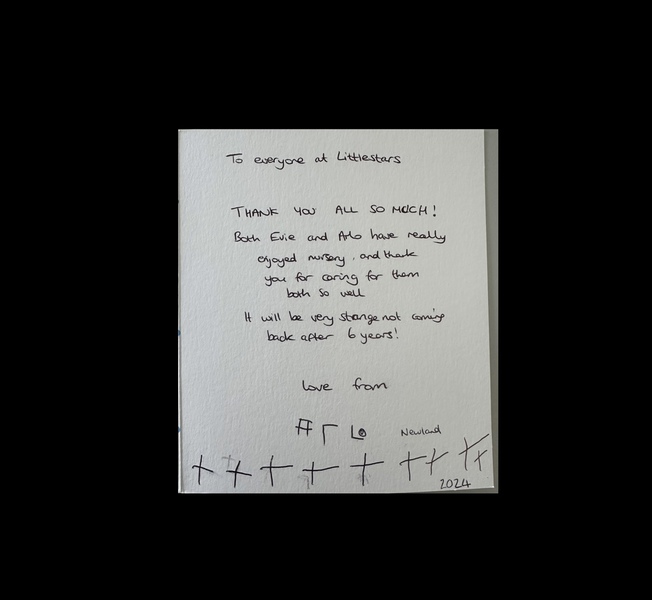 To everyone at Littlestars
THANK YOU ALL SO MUCH!
Both Evie and Arlo have really
enjoyed nursery, and thank
you for caring for them
both so well
It will be very strange not coming
back after 6 years!
love from
A r L o Newland
2024